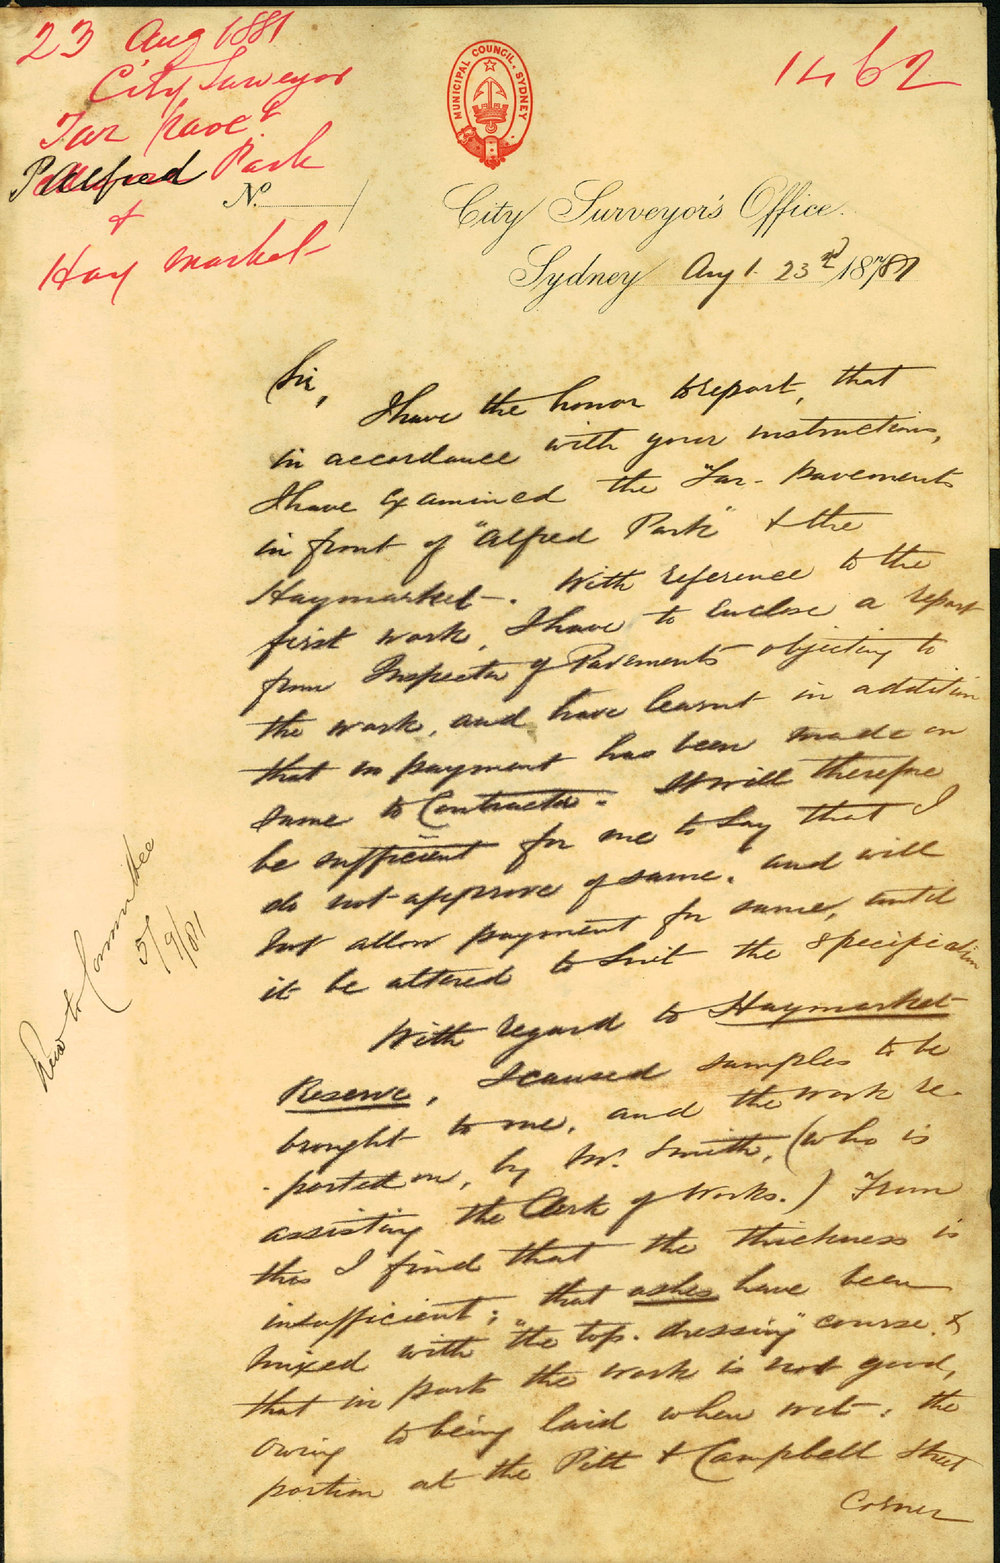 23 Aug 1881
City Surveyor
Tar pave.t
P Alfred Park
&
Hay Market
1462
MUNICIPAL COUNCIL. SYDNEY
No.
City Surveyor's Office.
Sydney Aug t. 23rd 1881
Sir,
I have the honor to report, that
in accordance with your instructions,
I have examined the Tar-pavements
in front of "Alfred Park" & the
Haymarket. With reference to the
first work, I have to enclose a report
from Inspector of Pavements objecting to
the work, and have learnt in addition
that no payment has been made on
same to Contractor. It will therefore
be sufficient for me to say that I
do not approve of same, and will
not allow payment for same, until
it be altered to suit the specification
With regard to Haymarket
Reserve, I caused samples to be
brought to me, and the work re-
-ported on, by Mr. Smith, (who is
assisting the Clerk of Works.) From
this I find that the thickness is
insufficient; that ashes have been
mixed with "the top-dressing" course &
that in parts the work is not good,
owing to being laid when wet; the
portion at the Pitt & Campbell Street
Corner
to Committee
5/9/81